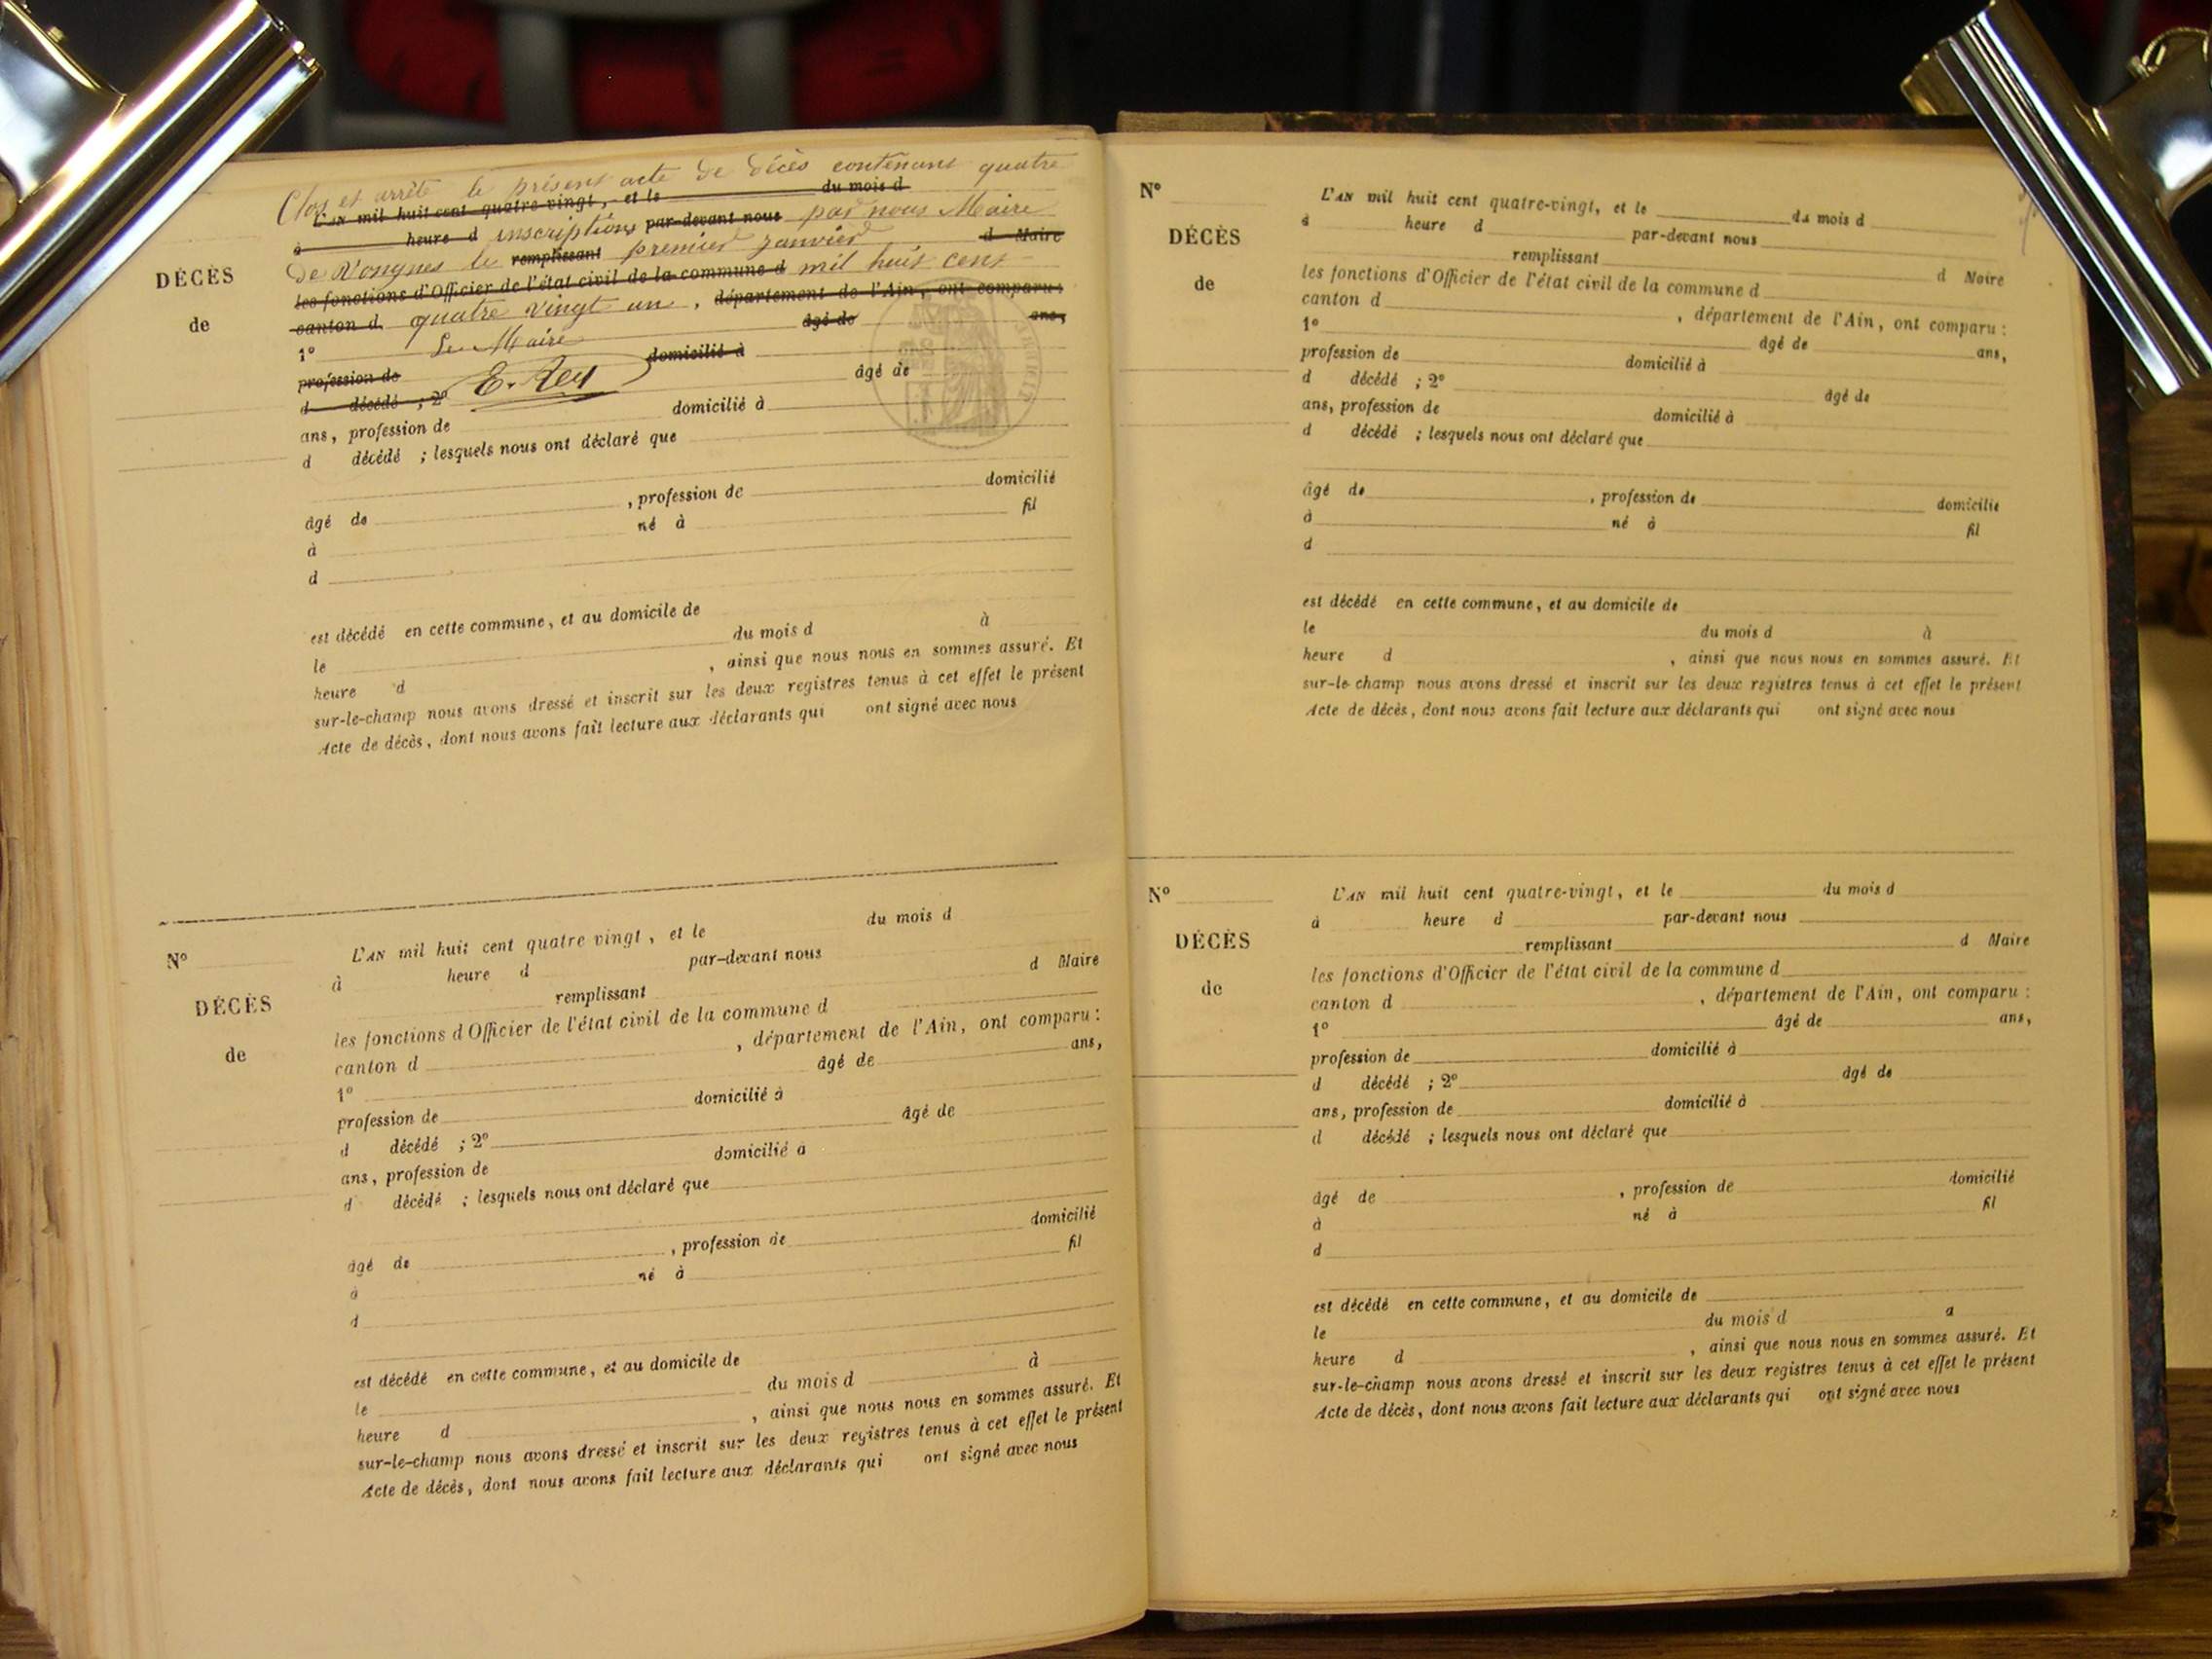 Clos et arrêté le présent acte de décès contenant quatre
L'AN mil huit cent quatre-vingt, et le du mois d
à heure d inscriptions par-devant nous par nous Maire
de Vongnes le remplissant premier janvier d Maire
les fonctions d'Officier de l'état civil de la commune d mil huit cent
canton d quatre vingt un , département de l'Ain, ont comparu :
1° Le Maire âgé de ans,
profession de domicilié à
d décédé ; 2° E. Rey âgé de
ans, profession de domicilié à
d décédé ; lesquels nous ont déclaré que
âgé de , profession de domicilié
à né à fil
d
est décédé en cette commune, et au domicile de
le du mois d à
heure d , ainsi que nous nous en sommes assuré. Et
sur-le-champ nous avons dressé et inscrit sur les deux registres tenus à cet effet le présent
Acte de décès, dont nous avons fait lecture aux déclarants qui ont signé avec nous
DÉCÈS
de
N°
DÉCÈS
de
L'AN mil huit cent quatre vingt, et le du mois d
à heure d par-devant nous
remplissant d Maire
les fonctions d'Officier de l'état civil de la commune d
canton d , département de l'Ain, ont comparu :
1° âgé de ans,
profession de domicilié à
d décédé ; 2° âgé de
ans, profession de domicilié à
d décédé ; lesquels nous ont déclaré que
âgé de , profession de domicilié
à né à fil
d
est décédé en cette commune, et au domicile de
le du mois d à
heure d , ainsi que nous nous en sommes assuré. Et
sur-le-champ nous avons dressé et inscrit sur les deux registres tenus à cet effet le présent
Acte de décès, dont nous avons fait lecture aux déclarants qui ont signé avec nous
N°
DÉCÈS
de
L'AN mil huit cent quatre-vingt, et le du mois d
à heure d par-devant nous
remplissant d Maire
les fonctions d'Officier de l'état civil de la commune d
canton d , département de l'Ain, ont comparu :
1° âgé de ans,
profession de domicilié à
d décédé ; 2° âgé de
ans, profession de domicilié à
d décédé ; lesquels nous ont déclaré que
âgé de , profession de domicilié
à né à fil
d
est décédé en cette commune, et au domicile de
le du mois d à
heure d , ainsi que nous nous en sommes assuré. Et
sur-le-champ nous avons dressé et inscrit sur les deux registres tenus à cet effet le présent
Acte de décès, dont nous avons fait lecture aux déclarants qui ont signé avec nous
N°
DÉCÈS
de
L'AN mil huit cent quatre-vingt, et le du mois d
à heure d par-devant nous
remplissant d Maire
les fonctions d'Officier de l'état civil de la commune d
canton d , département de l'Ain, ont comparu :
1° âgé de ans,
profession de domicilié à
d décédé ; 2° âgé de
ans, profession de domicilié à
d décédé ; lesquels nous ont déclaré que
âgé de , profession de domicilié
à né à fil
d
est décédé en cette commune, et au domicile de
le du mois d à
heure d , ainsi que nous nous en sommes assuré. Et
sur-le-champ nous avons dressé et inscrit sur les deux registres tenus à cet effet le présent
Acte de décès, dont nous avons fait lecture aux déclarants qui ont signé avec nous